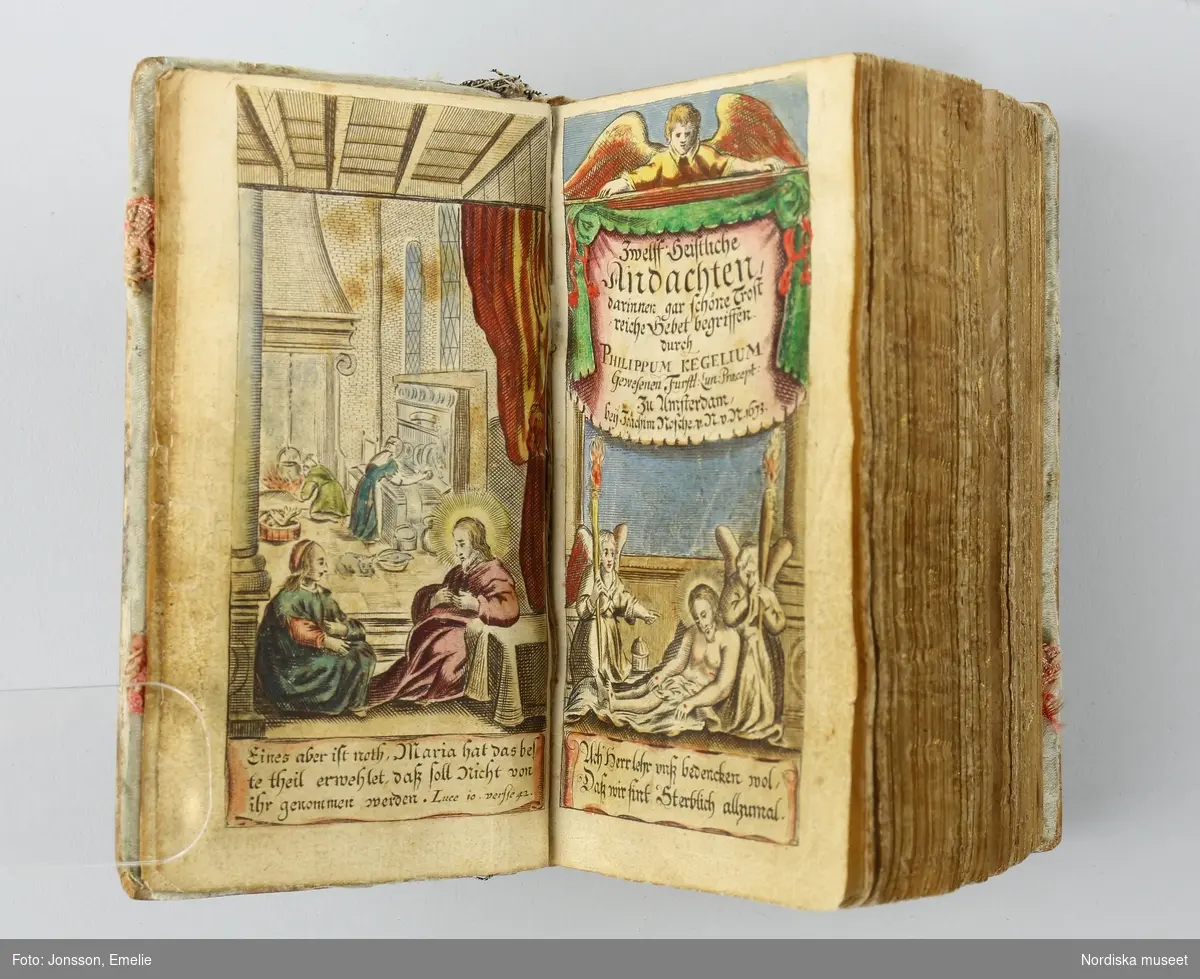 Eines aber ist noth, Maria hat das bes
te theil erwehlet, daß soll Nicht von
ihr genommen werden. Luce 10. versse 42.
Zwelff Geistliche
Andachten,
darinnen gar schöne Trost
reiche Gebet begriffen
durch
PHILIPPUM KEGELIUM
Gewesenen Furstl: Lun: Præcept:
Zu Amsterdam,
beÿ Joachim Nosche. v. N. v. N. 1673.
Ach Herr lehr vnß bedencken wol,
Daß wir sint Sterblich allzumal.
Foto: Jonsson, Emelie
Nordiska museet